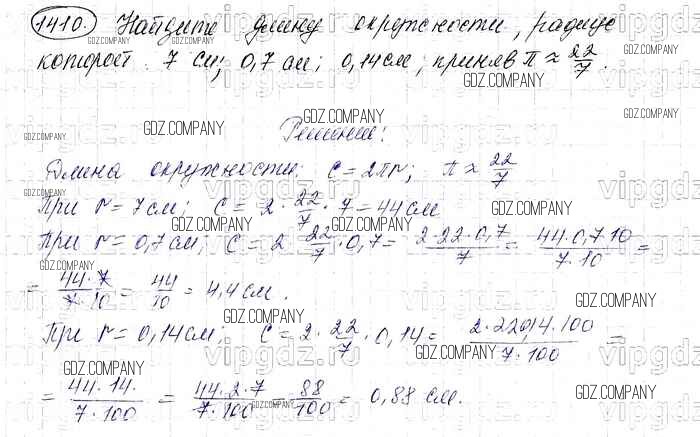 1410. Найдите длину окружности, радиус
которой 7 см; 0,7 см; 0,14 см, приняв π ≈ 22/7.
Решение:
Длина окружности: C = 2πr; π ≈ 22/7
При r = 7 см; C = 2 · 22/7 · 7 = 44 см
При r = 0,7 см; C = 2 · 22/7 · 0,7 = 2·22·0,7/7 = 44·0,7·10/7·10 =
= 44·7/7·10 = 44/10 = 4,4 см.
При r = 0,14 см; C = 2 · 22/7 · 0,14 = 2·22·0,14·100/7·100 =
= 44·14/7·100 = 44·2·7/7·100 = 88/100 = 0,88 см.
GDZ.COMPANY
vipgdz.ru